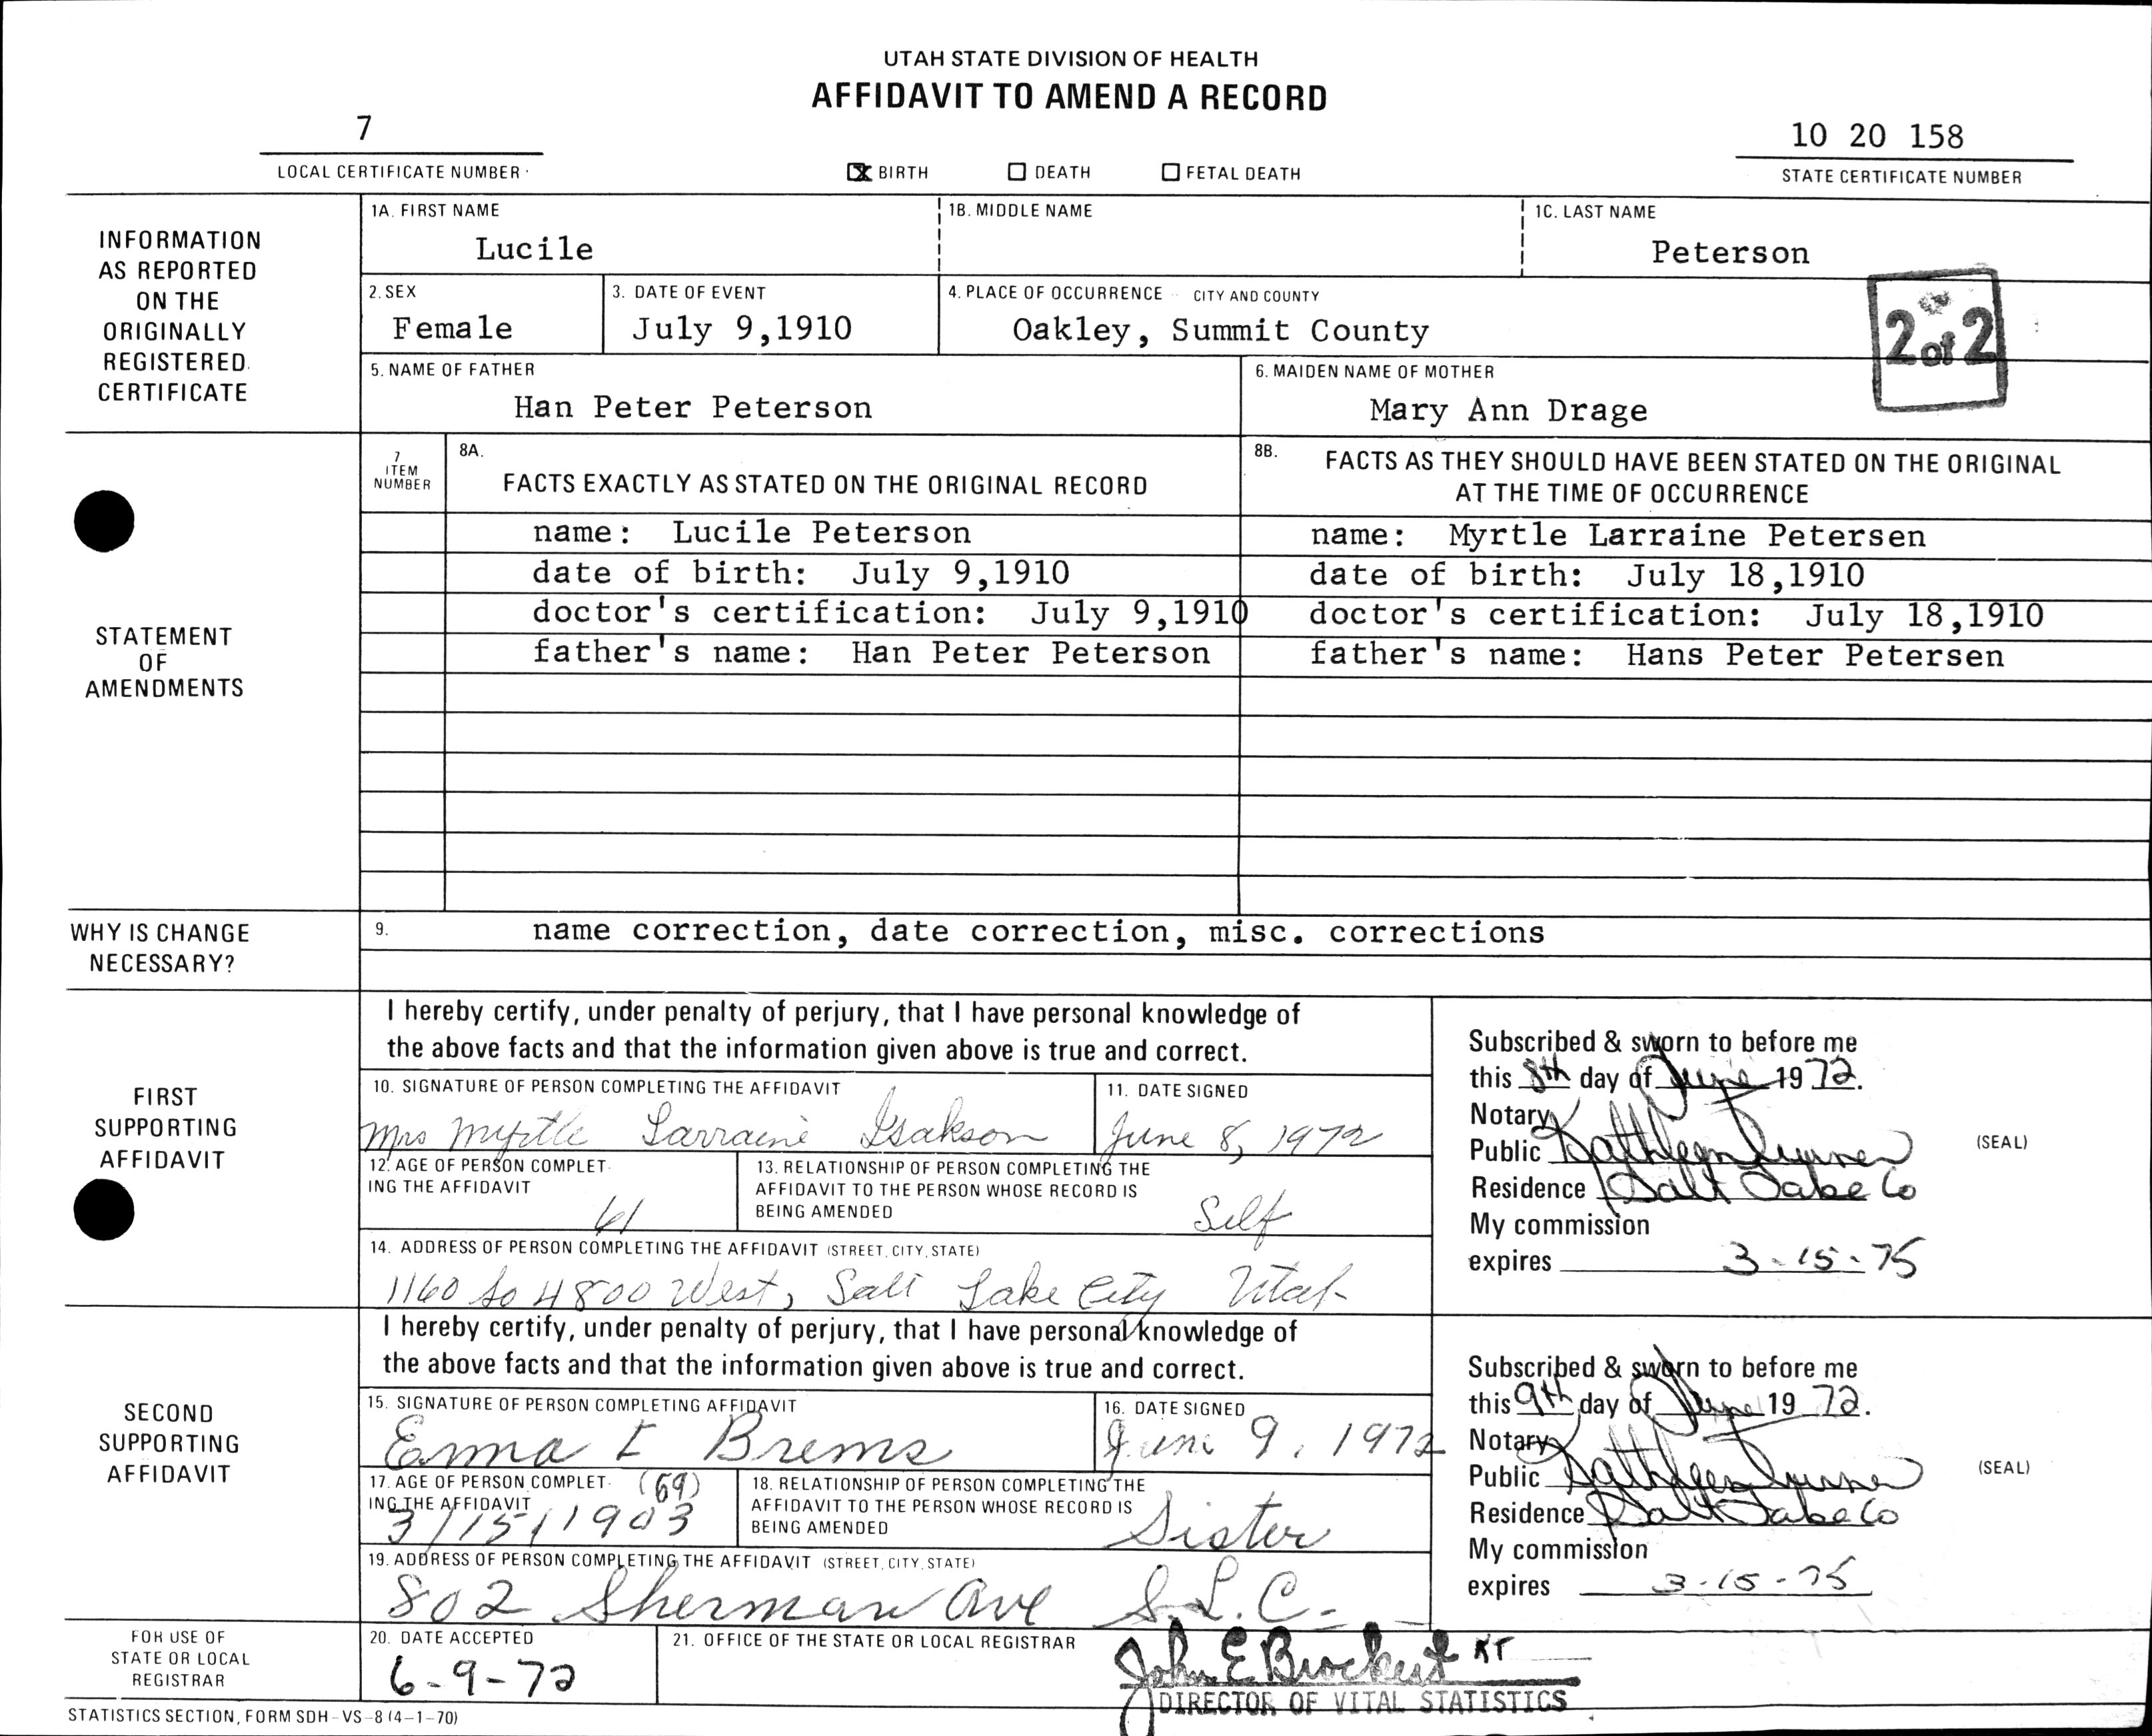 UTAH STATE DIVISION OF HEALTH
AFFIDAVIT TO AMEND A RECORD
7
LOCAL CERTIFICATE NUMBER
X BIRTH DEATH FETAL DEATH
10 20 158
STATE CERTIFICATE NUMBER
INFORMATION
AS REPORTED
ON THE
ORIGINALLY
REGISTERED
CERTIFICATE
1A. FIRST NAME
Lucile
1B. MIDDLE NAME
1C. LAST NAME
Peterson
2. SEX
Female
3. DATE OF EVENT
July 9,1910
4. PLACE OF OCCURRENCE CITY AND COUNTY
Oakley, Summit County
2 of 2
5. NAME OF FATHER
Han Peter Peterson
6. MAIDEN NAME OF MOTHER
Mary Ann Drage
STATEMENT
OF
AMENDMENTS
7
ITEM
NUMBER
8A.
FACTS EXACTLY AS STATED ON THE ORIGINAL RECORD
8B.
FACTS AS THEY SHOULD HAVE BEEN STATED ON THE ORIGINAL
AT THE TIME OF OCCURRENCE
name: Lucile Peterson
name: Myrtle Larraine Petersen
date of birth: July 9,1910
date of birth: July 18,1910
doctor's certification: July 9,1910
doctor's certification: July 18,1910
father's name: Han Peter Peterson
father's name: Hans Peter Petersen
WHY IS CHANGE
NECESSARY?
9.
name correction, date correction, misc. corrections
FIRST
SUPPORTING
AFFIDAVIT
I hereby certify, under penalty of perjury, that I have personal knowledge of
the above facts and that the information given above is true and correct.
10. SIGNATURE OF PERSON COMPLETING THE AFFIDAVIT
Mrs Myrtle Larraine Isakson
11. DATE SIGNED
June 8, 1972
12. AGE OF PERSON COMPLET-
ING THE AFFIDAVIT
61
13. RELATIONSHIP OF PERSON COMPLETING THE
AFFIDAVIT TO THE PERSON WHOSE RECORD IS
BEING AMENDED
Self
14. ADDRESS OF PERSON COMPLETING THE AFFIDAVIT (STREET, CITY, STATE)
1160 So 4800 West, Salt Lake City Utah
Subscribed & sworn to before me
this 8th day of June 1972.
Notary
Public Kathleen
Residence Salt Lake Co
My commission
expires 3-15-75
(SEAL)
SECOND
SUPPORTING
AFFIDAVIT
I hereby certify, under penalty of perjury, that I have personal knowledge of
the above facts and that the information given above is true and correct.
15. SIGNATURE OF PERSON COMPLETING AFFIDAVIT
Emma E Brems
16. DATE SIGNED
June 9, 1972
17. AGE OF PERSON COMPLET-
ING THE AFFIDAVIT
(69)
3/15/1903
18. RELATIONSHIP OF PERSON COMPLETING THE
AFFIDAVIT TO THE PERSON WHOSE RECORD IS
BEING AMENDED
Sister
19. ADDRESS OF PERSON COMPLETING THE AFFIDAVIT (STREET, CITY, STATE)
802 Sherman Ave S.L.C.
Subscribed & sworn to before me
this 9th day of June 1972.
Notary
Public Kathleen
Residence Salt Lake Co
My commission
expires 3-15-75
(SEAL)
FOR USE OF
STATE OR LOCAL
REGISTRAR
20. DATE ACCEPTED
6-9-72
21. OFFICE OF THE STATE OR LOCAL REGISTRAR
John E Brockert KT
DIRECTOR OF VITAL STATISTICS
STATISTICS SECTION, FORM SDH-VS-8 (4-1-70)